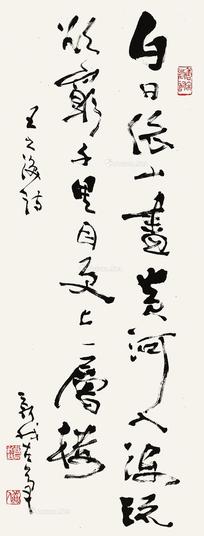 白日依山盡黃河入海流
欲窮千里目更上一層樓
王之渙詩